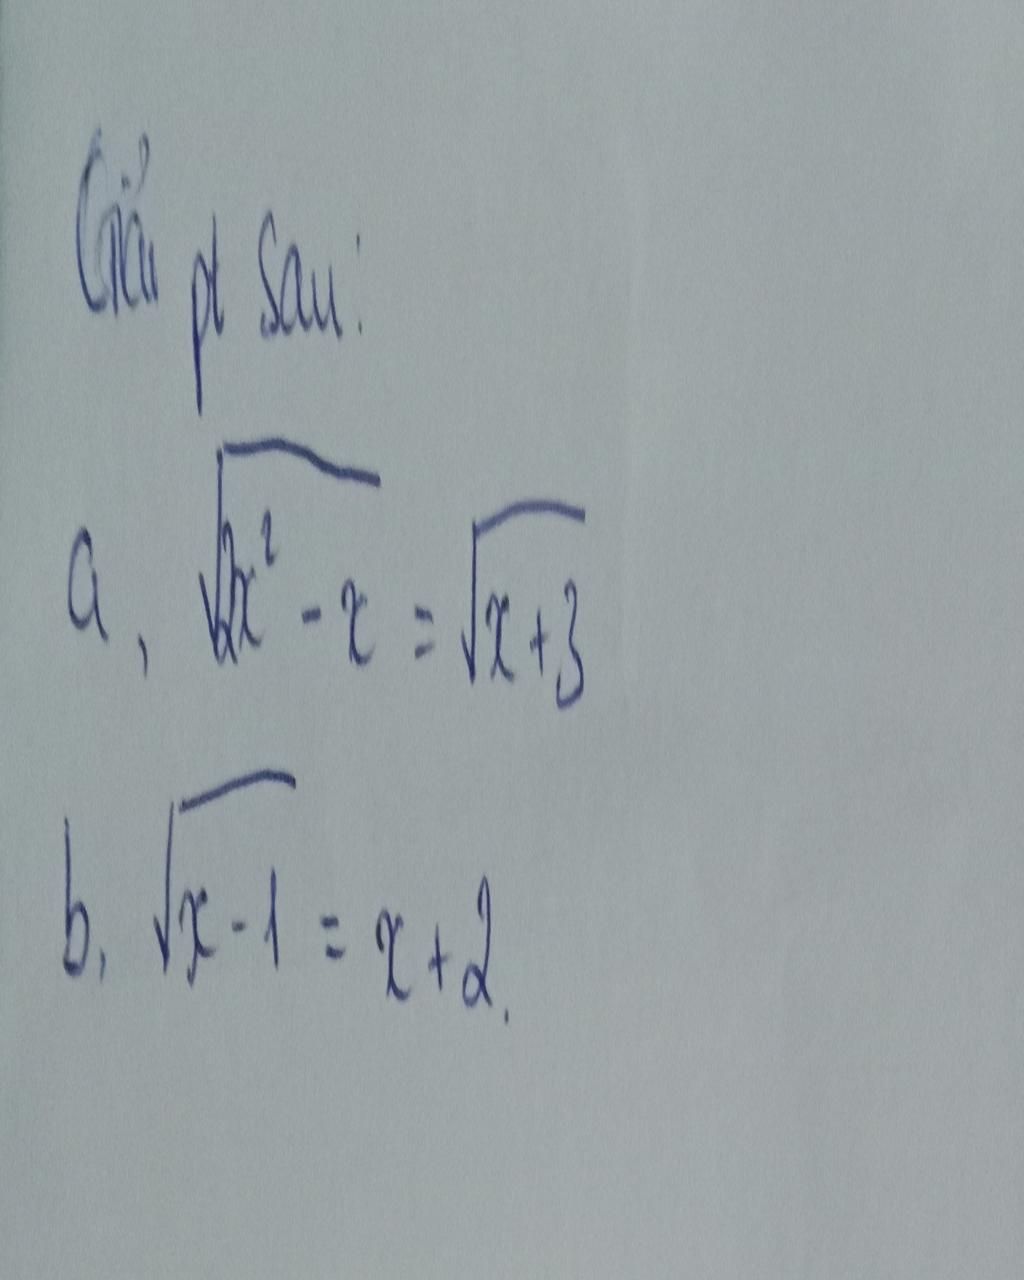 Giải pt sau:
a, √2x² - x = √x+3
b, √x-1 = x+2.